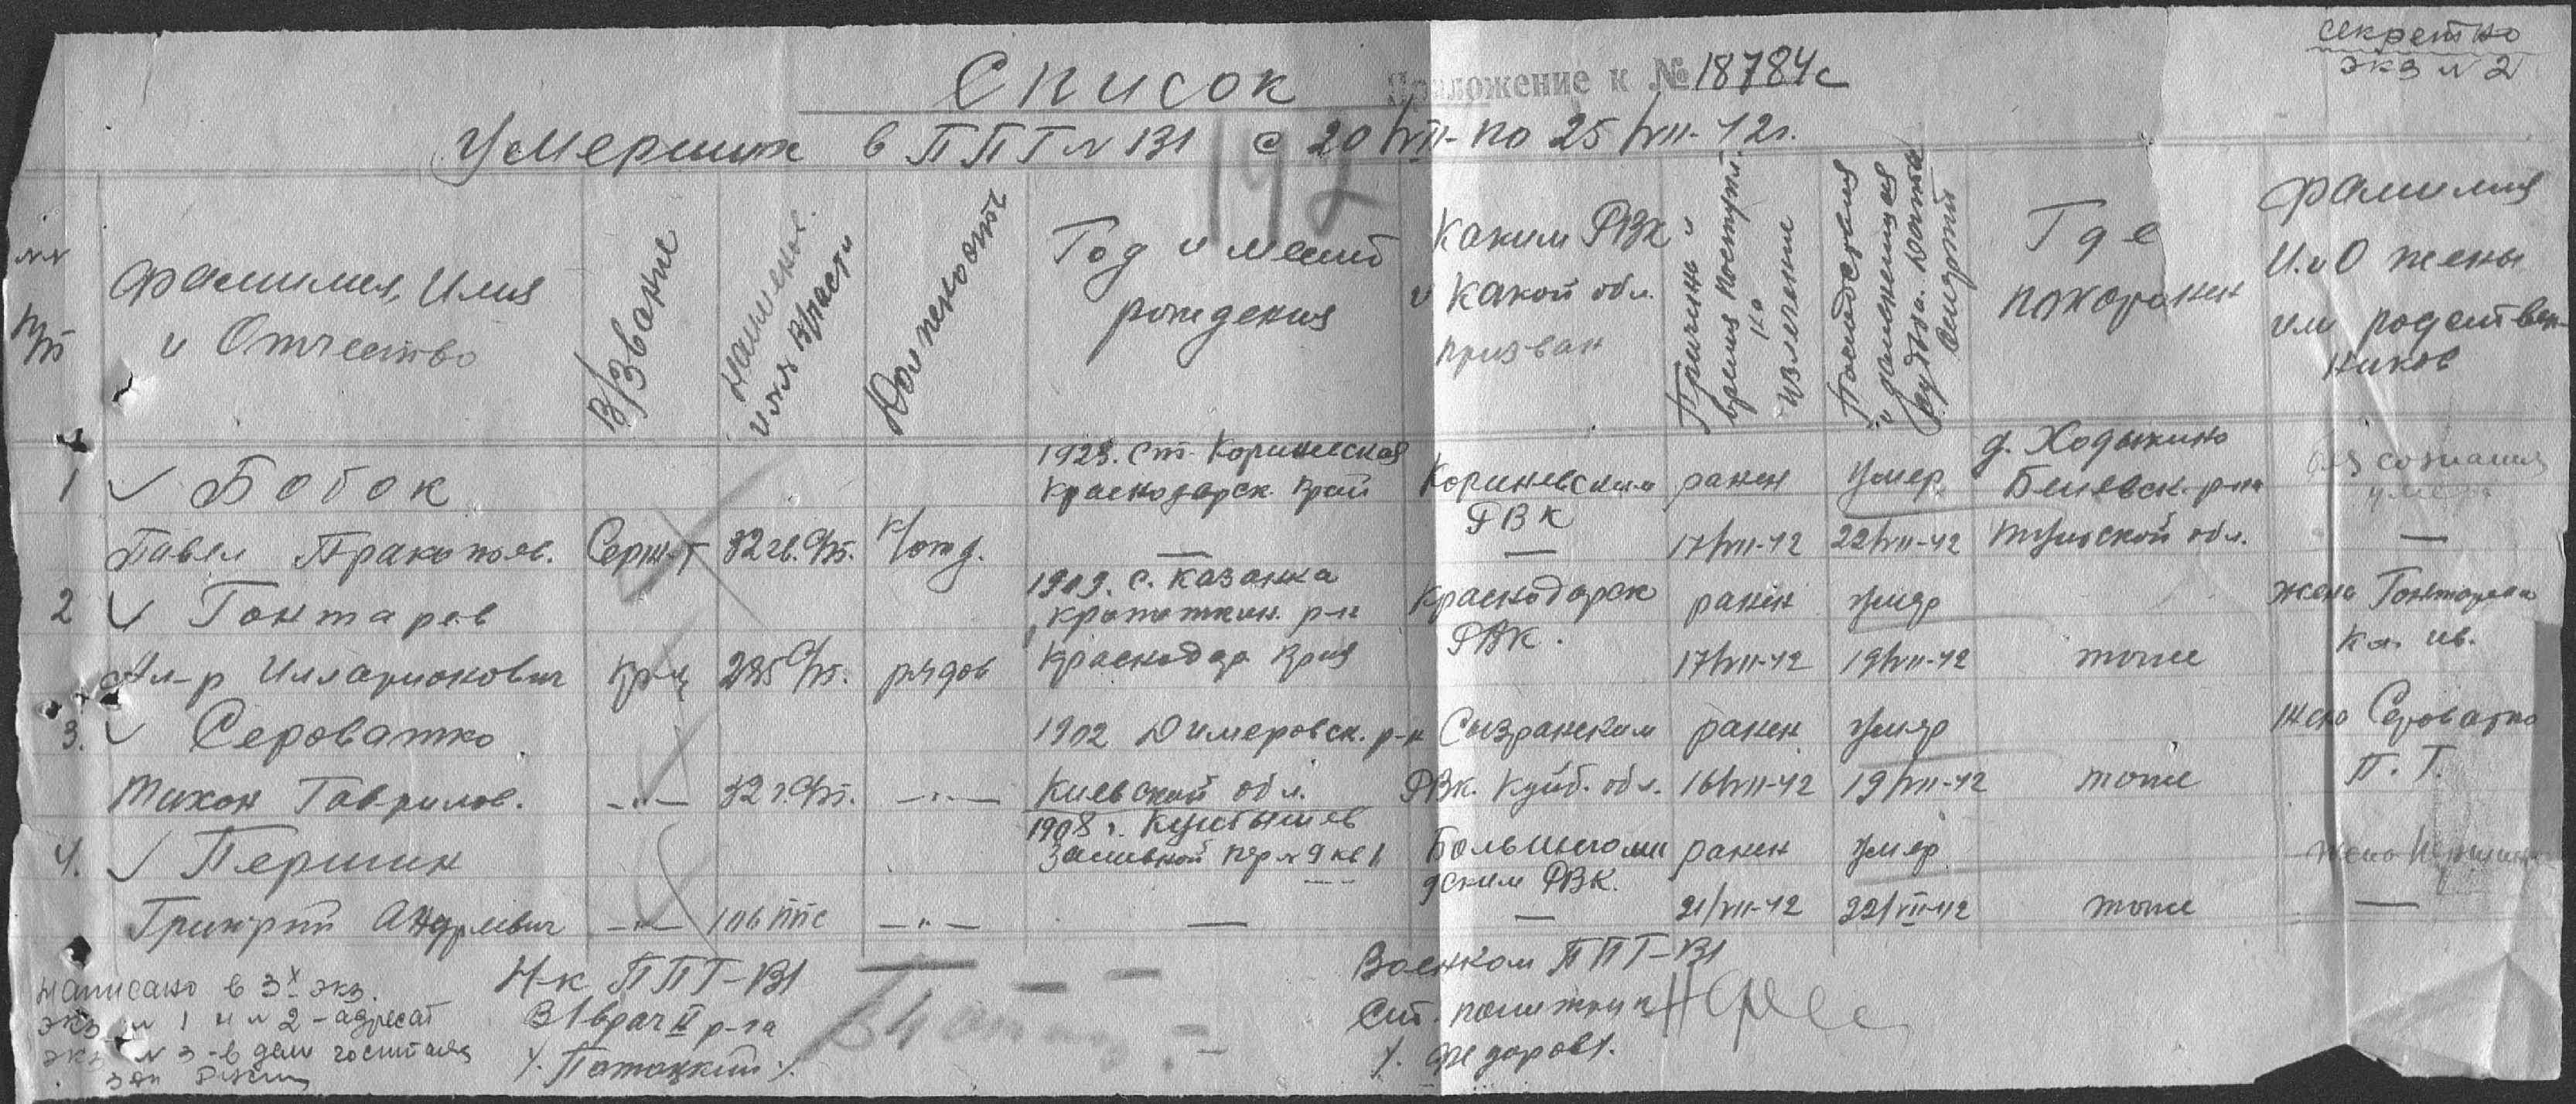 секретно
экз № 2
Список
Приложение к № 18784с
Умерших в ППГ № 131 с 20/VII- по 25/VII-42г.
192
№№
п/п
Фамилия, Имя
и Отчество
В/Звание
Наименов.
и №№ В/части
Должность
Год и место
рождения
Каким РВК
и какой обл.
призван
Причины и
время поступл.
на
излечение
Последствия
ранения
Дата
смерти
Где
похоронен
Фамилия
И. и О жены
или родствен-
ников
1 ✓ Бобок
Павел Пракопьев.
Серж-т
32 гв. С/п.
К/отд.
1923. ст. Кориневская
Краснодарск. Край
—
Кориневским
РВК
—
ранен
17/VII-42
умер
22/VII-42
д. Ходыкино
Белевск. р-на
Тульской обл.
без сознания
умер
—
2 ✓ Гонтарев
Ал-р Илларионович
Кр-ц
235 С/п.
рядов
1909. с. Казанка
Кропоткин. р-н
Краснодар Края
Краснодарск
РВК.
ранен
17/VII-42
умер
19/VII-42
тоже
жена Гонтарева
Кл. Ив.
3. ✓ Сероватко
Тихон Гаврилов.
—„—
32 г. С/п.
—„—
1902 Димеровск. р-н
Киевской обл.
Сызранским
РВК. Куйб. обл.
ранен
16/VII-42
умер
19/VII-42
тоже
жена Сероватко
П. Т.
4. ✓ Першин
Григорий Андреевич
—„—
106 ППС
—„—
1908 г. Куйбышев
Засивной пер № 9 кв 1
—
РВК.
—
ранен
21/VII-42
умер
22/VII-42
тоже
жена Першина
—
Написано в 3х экз.
экз № 1 и № 2 - адресат
экз № 3 - в деле госпиталя
Н-к ППГ-131
в/врач II р-га
/. Потоцкий /.
Военком ППГ-131
Ст. политрук
/. Федоров /.